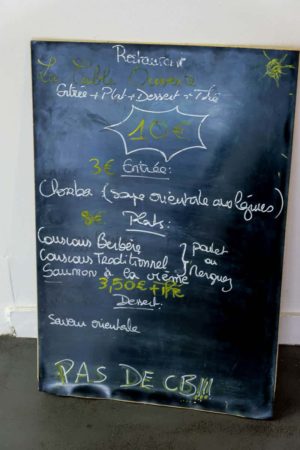 Restaurant
La Table Ouverte
Entrée + Plat + Dessert + Thé
10€
3€ Entrée:
Chorba (soupe orientale aux légumes)
8€ Plats:
Couscous Berbère
Couscous Traditionnel } poulet ou Merguez
Saumon à la crème
3,50€
Dessert:
Saveur orientale
PAS DE CB!!!